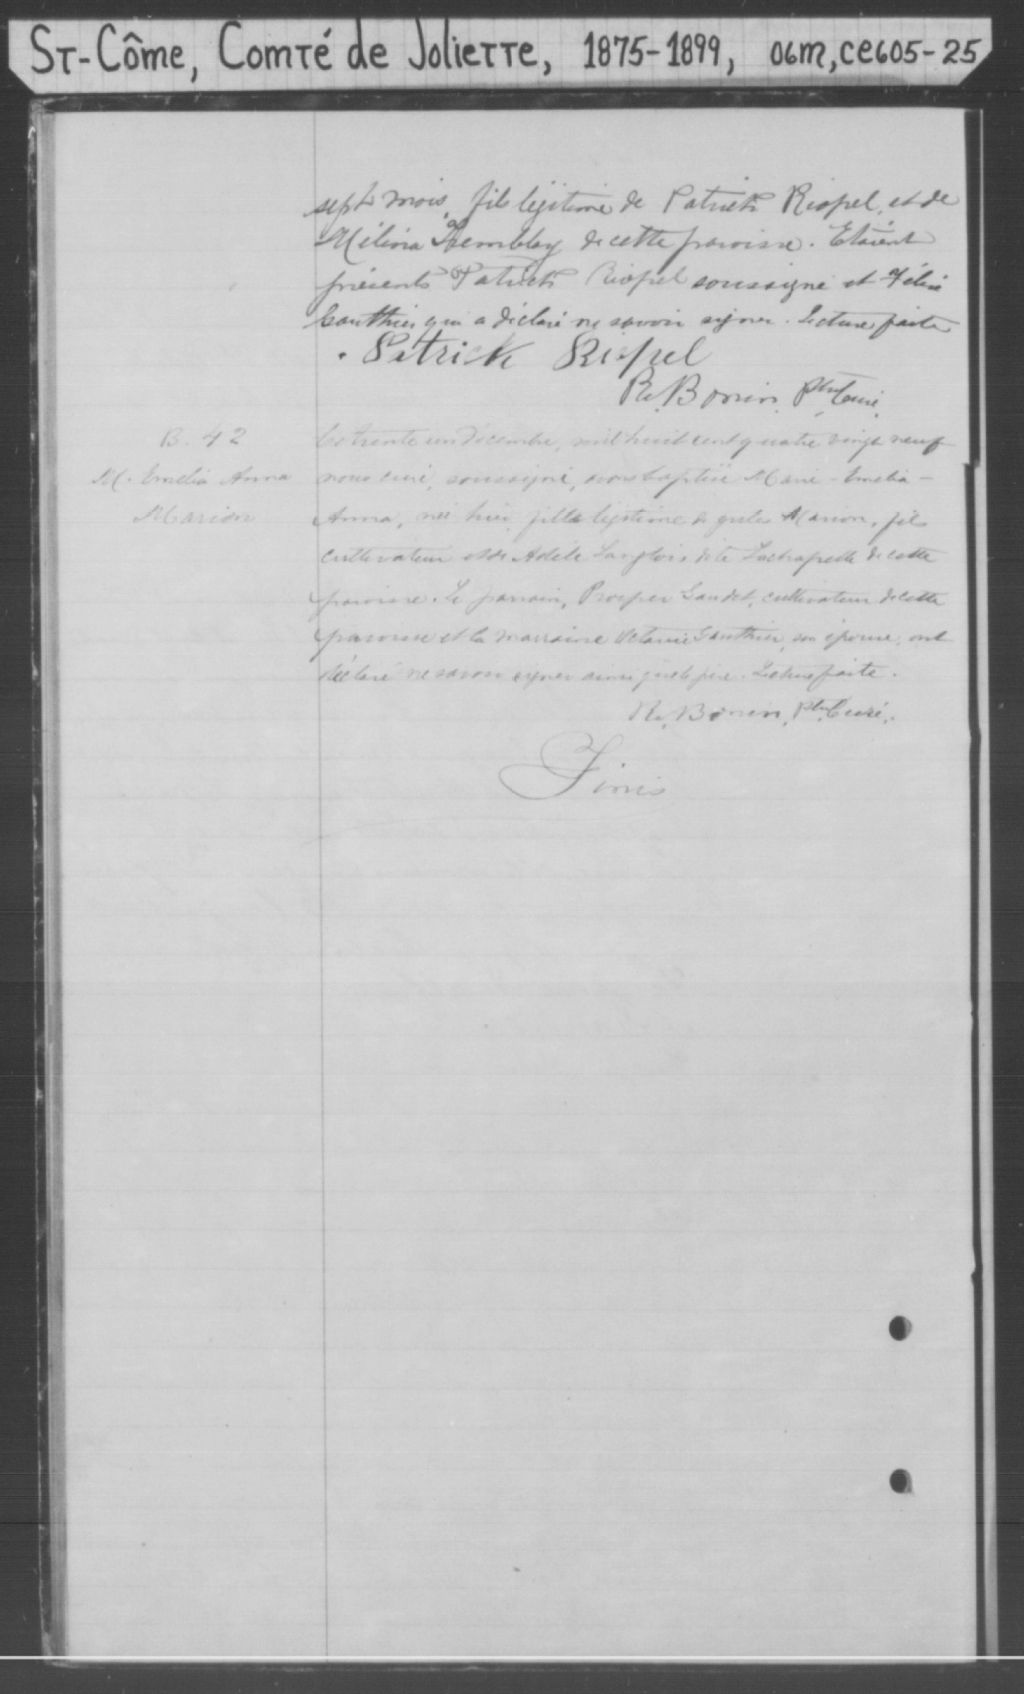 St-Côme, Comté de Joliette, 1875-1899, 06M,CE605-25
sept mois, fils légitime de Patrick Riopel, et de
Mélina Tremblay de cette paroisse. Etaient
présents Patrick Riopel soussigné et
Gauthier qui a déclaré ne savoir signer. Lecture faite
Patrick Riopel
R. Bonin, Ptre Curé.
B. 42
M. Emélia Anna
Marion
Le trente un décembre, mil huit cent quatre vingt neuf
nous curé, soussigné, avons baptisé Marie-Emélia-
Anna, née hier, fille légitime de Marion, fils
cultivateur et de Adèle Langlois dite Lachapelle de cette
paroisse. Le parrain, Prosper Gaudet, cultivateur de cette
paroisse et la marraine Gauthier, son épouse, ont
déclaré ne savoir signer ainsi que le père. Lecture faite.
R. Bonin, Ptre Curé.
Finis